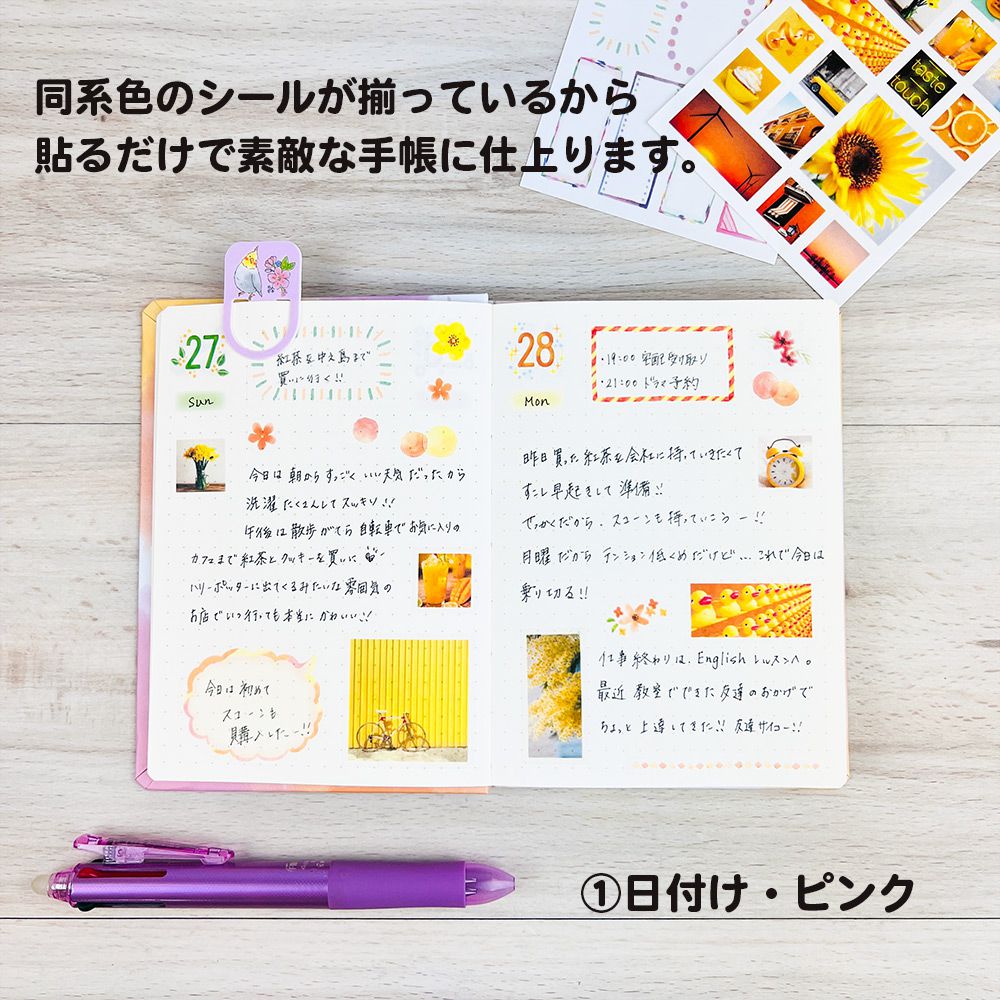 同系色のシールが揃っているから
貼るだけで素敵な手帳に仕上ります。
taste
touch
27
Sun
紅茶を中之島まで
買いに行く!!
今日は朝からすっごくいい天気だったから
洗濯たくさんしてスッキリ!!
午後は散歩がてら自転車でお気に入りの
カフェまで紅茶とクッキーを買いに
ハリーポッターに出てくるみたいな雰囲気の
お店でいつ行っても本当にかわいい!!
今日は初めて
スコーンも
購入したー!!
28
Mon
・19:00 宅配受け取り
・21:00 ドラマ予約
昨日買った紅茶を会社に持っていきたくて
すこし早起きして準備!!
せっかくだから、スコーンも持っていこうー!!
月曜だからテンション低くめだけど...これで今日は
乗り切る!!
仕事終わりは、Englishレッスンへ。
最近教室でできた友達のおかげで
ちょっと上達してきた!!友達サイコー!!
①日付け・ピンク